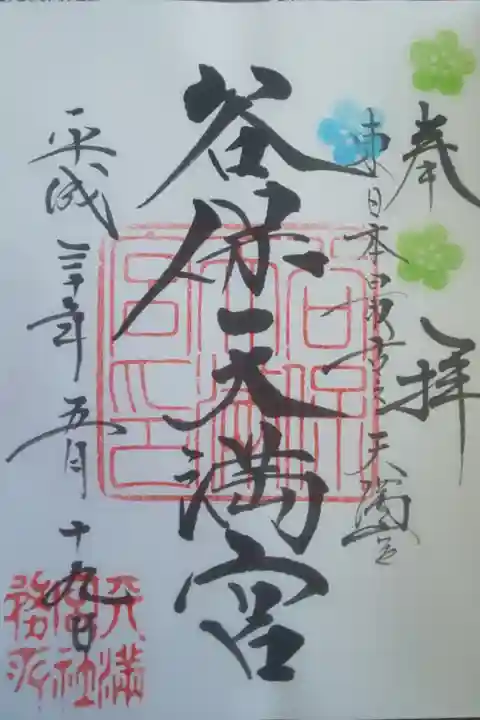 奉拝
東日本最古之天満宮
谷保天満宮
平成三十年五月十九日
谷保天満宮之印
天満宮社務所